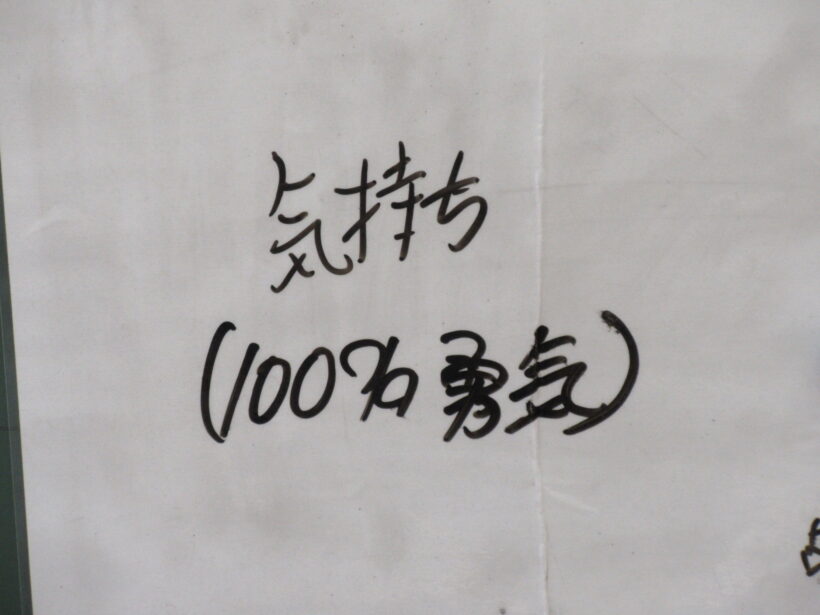 気持ち
(100%勇気)